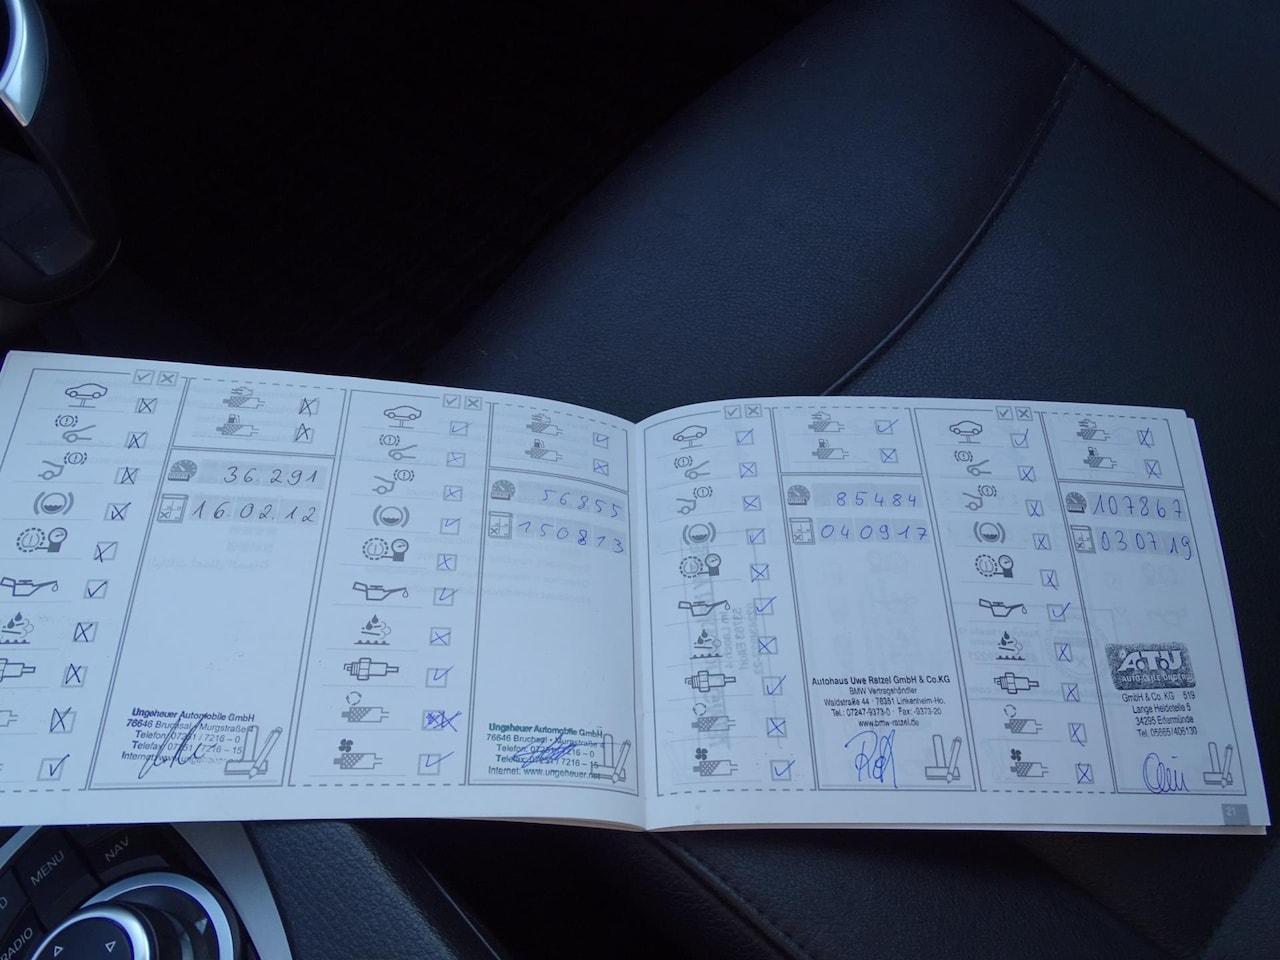 36.291
16.02.12
Ungeheuer Automobile GmbH
76646 Bruchsal · Murgstraße
Telefon: 07251 / 7216 – 0
Telefax: 07251 / 7216 – 15
Internet: www.ungeheuer
56855
150813
Ungeheuer Automobile GmbH
76646 Bruchsal · Murgstraße
Telefon: 07251 / 7216 – 0
Telefax: 07251 / 7216 – 15
Internet: www.ungeheuer.net
85484
040917
Autohaus Uwe Ratzel GmbH & Co.KG
BMW Vertragshändler
Waldstraße 44 · 76351 Linkenheim-Ho.
Tel.: 07247-9373-0 · Fax: -9373-20
www.bmw-ratzel.de
107867
030719
A.T.U
AUTO-TEILE UNGER
GmbH & Co. KG 519
Lange Heideteile 5
34295 Edermünde
Tel. 05665/406130
21
MENU
NAV
RADIO